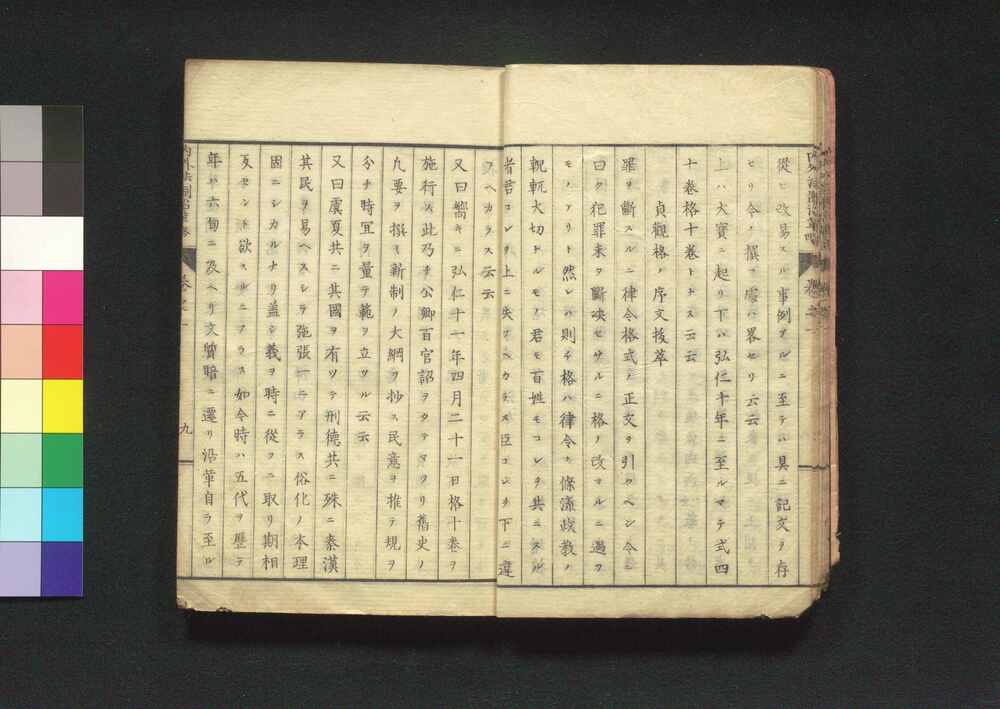 從ヒ改易スル事例アルニ至テハ具ニ記文ヲ存
セリ今ノ撰フ處ハ畧セリ云云
上ハ大寳ニ起リ下ハ弘仁十年ニ至ルマテ式四
十卷格十卷トス云云
貞觀格ノ序文拔萃
罪ヲ斷スルニ律令格式ノ正文ヲ引クヘシ令ニ
曰ク犯罪未タ斷决セサルニ格ノ改マルニ遇フ
モノアリト然レハ則チ格ハ律令ノ條流政教ノ
輗軏大切ナルモノ君モ百姓モコレヲ共ニスル
者君コレヲ上ニ失フヘカラス臣コレヲ下ニ違
フヘカラス云云
又曰嚮キニ弘仁十一年四月二十一日格十卷ヲ
施行ス此乃チ公卿百官詔ヲタテマツリ舊史ノ
凡要ヲ撰ミ新制ノ大綱ヲ抄ス民意ヲ推テ規ヲ
分チ時宜ヲ量テ範ヲ立ツル云云
又曰虞夏共ニ其國ヲ有ツテ刑德共ニ殊ニ秦漢
其民ヲ易ヘスシテ弛張一ニアラス俗化ノ本理
因ニシカルナリ盖シ義ヲ時ニ從フニ取リ期相
反セント欲スルニアラス如今時ハ五代ヲ歷テ
年ハ六旬ニ及ヘリ文質暗ニ遷リ沿革自ラ至ル
卷之一
九